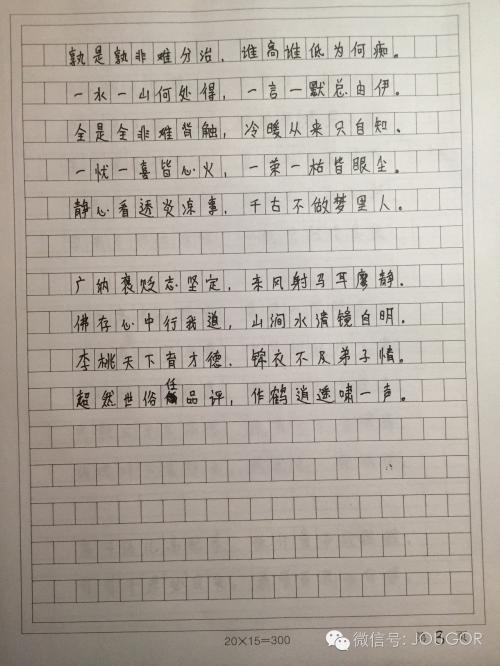 孰是孰非难分治，谁高谁低为何痴。
一水一山何处得，一言一默总由伊。
全是全非难背触，冷暖从来只自知。
一忧一喜皆心火，一荣一枯皆眼尘。
静心看透炎凉事，千古不做梦里人。
广纳褒贬志坚定，东风射马耳廖静。
佛存心中行我道，山涧水清镜自明。
李桃天下育才德，锦衣不及弟子情。
超然世俗任品评，作鹤逍遥啸一声。
20×15=300
微信号: JOUGOR
3